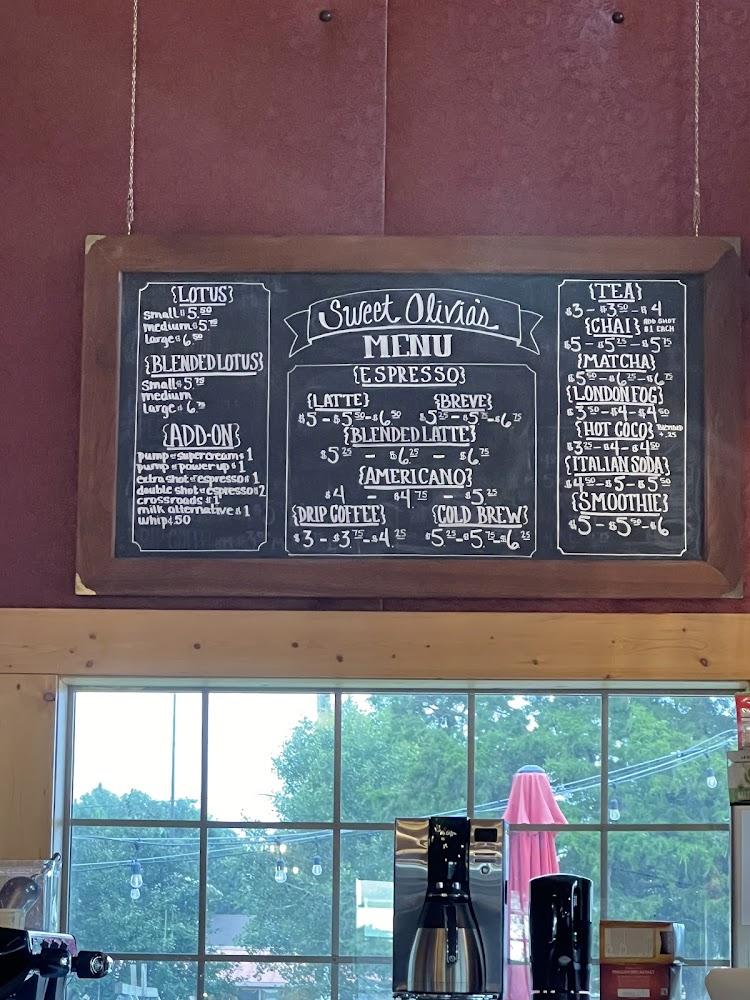 {LOTUS}
small $5.50
medium $5.75
large $6.50
{BLENDED LOTUS}
small $5.75
medium
large $6.75
{ADD-ON}
pump of supercream $1
pump of power up $1
extra shot of espresso $1
double shot of espresso $2
crossroads $1
milk alternative $1
whip $.50
Sweet Olivia's
MENU
{ESPRESSO}
{LATTE}
$5 - $5.50 - $6.50
{BREVE}
$5.25 - $5.75 - $6.75
{BLENDED LATTE}
$5.25 - $6.25 - $6.75
{AMERICANO}
$4 - $4.75 - $5.25
{DRIP COFFEE}
$3 - $3.75 - $4.25
{COLD BREW}
$5.25 - $5.75 - $6.25
{TEA}
$3 - $3.50 - $4
{CHAI} ADD SHOT
$1 EACH
$5 - $5.25 - $5.75
{MATCHA}
$5.50 - $6.25 - $6.75
{LONDON FOG}
$3.50 - $4 - $4.50
{HOT COCO} BLENDED
+.25
$3.25 - $4 - $4.50
{ITALIAN SODA}
$4.50 - $5 - $5.50
{SMOOTHIE}
$5 - $5.50 - $6